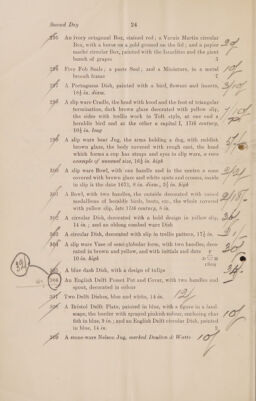 Second Day 24
295 An ivory octagonal Box, stained red; a Vernis Martin circular
Box, with a horse on a gold ground on the lid; and a papier
maché circular Box, painted with the Israelites and the giant
bunch of grapes 3
296 Five Fob Seals; a paste Seal; and a Miniature, in a metal
brooch frame 7
297 A Portuguese Dish, painted with a bird, flowers and insects,
298 A slip ware Cradle, the head with hood and the foot of triangular
termination, dark brown glaze decorated with yellow slip,
the sides with trellis work in Toft style, at one end a
heraldic bird and at the other a capital I, 17th century,
10½ in. long
299 A slip ware bear Jug, the arms holding a dog, with reddish
brown glaze, the body covered with rough coat, the head
which forms a cup has straps and eyes in slip ware, a rare
example of unusual size, 10½ in high
300 A slip ware Bowl, with one handle and in the centre a cone
covered with brown glaze and white spots and crosses, inside
in slip is the date 1673, 8 in. diam., 5½ in high
301 A Bowl, with two handles, the outside decorated with raised
medallions of heraldic birds, busts, etc., the whole covered
with yellow slip, late 17th century, 6 in.
302 A circular Dish, decorated with a bold design in yellow slip,
14 in; and an oblong combed ware Dish
303 A circular Dish, decorated with slip in trellis pattern, 17½ in
304 A slip ware Vase of semi-globular form, with two handles, deco-
rated in brown and yellow, and with initials and date
10 in. high
305 A blue dash Dish, with a design of tulips
306 An English Delft Posset Pot and Cover, with two handles and
spout, decorated in colour
307 Two Delft Dishes, blue and white, 14 in.
308 A Bristol Delft Plate, painted in blue, with a figure in a land-
scape, the border with sprayed pinkish colour, enclosing
fish in blue, 9 in; and an English Delft circular Dish, painted
in blue, 14 in 2
309 A stone-ware Nelson Jug, marked Doulton & Watts